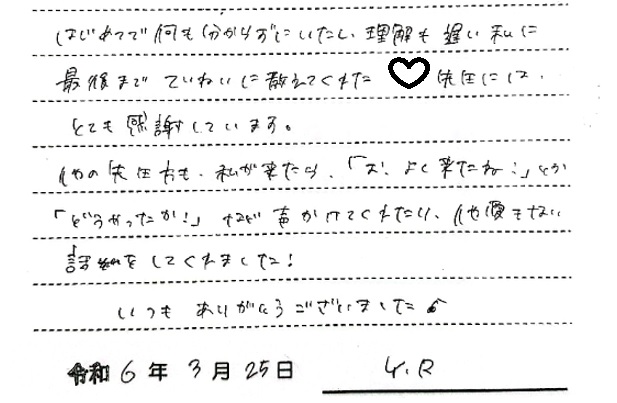 はじめてで何も分からずにいたし、理解も遅い私に
最後までていねいに教えてくれた♡先生には、
とても感謝しています。
他の先生方も、私が来たら、「お、よく来たね!」とか
「どうやったか!」など声かけてくれたり、他愛もない
話をしてくれました!
いつもありがとうございました
令和6年3月25日 Y.R